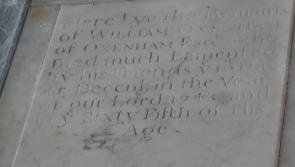 Here Lye the Remains
of WILLIAM
of OXENHAM Esqr. who
Died much Lamented
by his Friends
of Decembr. in the Year
of our Lord 1743 and
ye Sixty Fifth of His
Age.